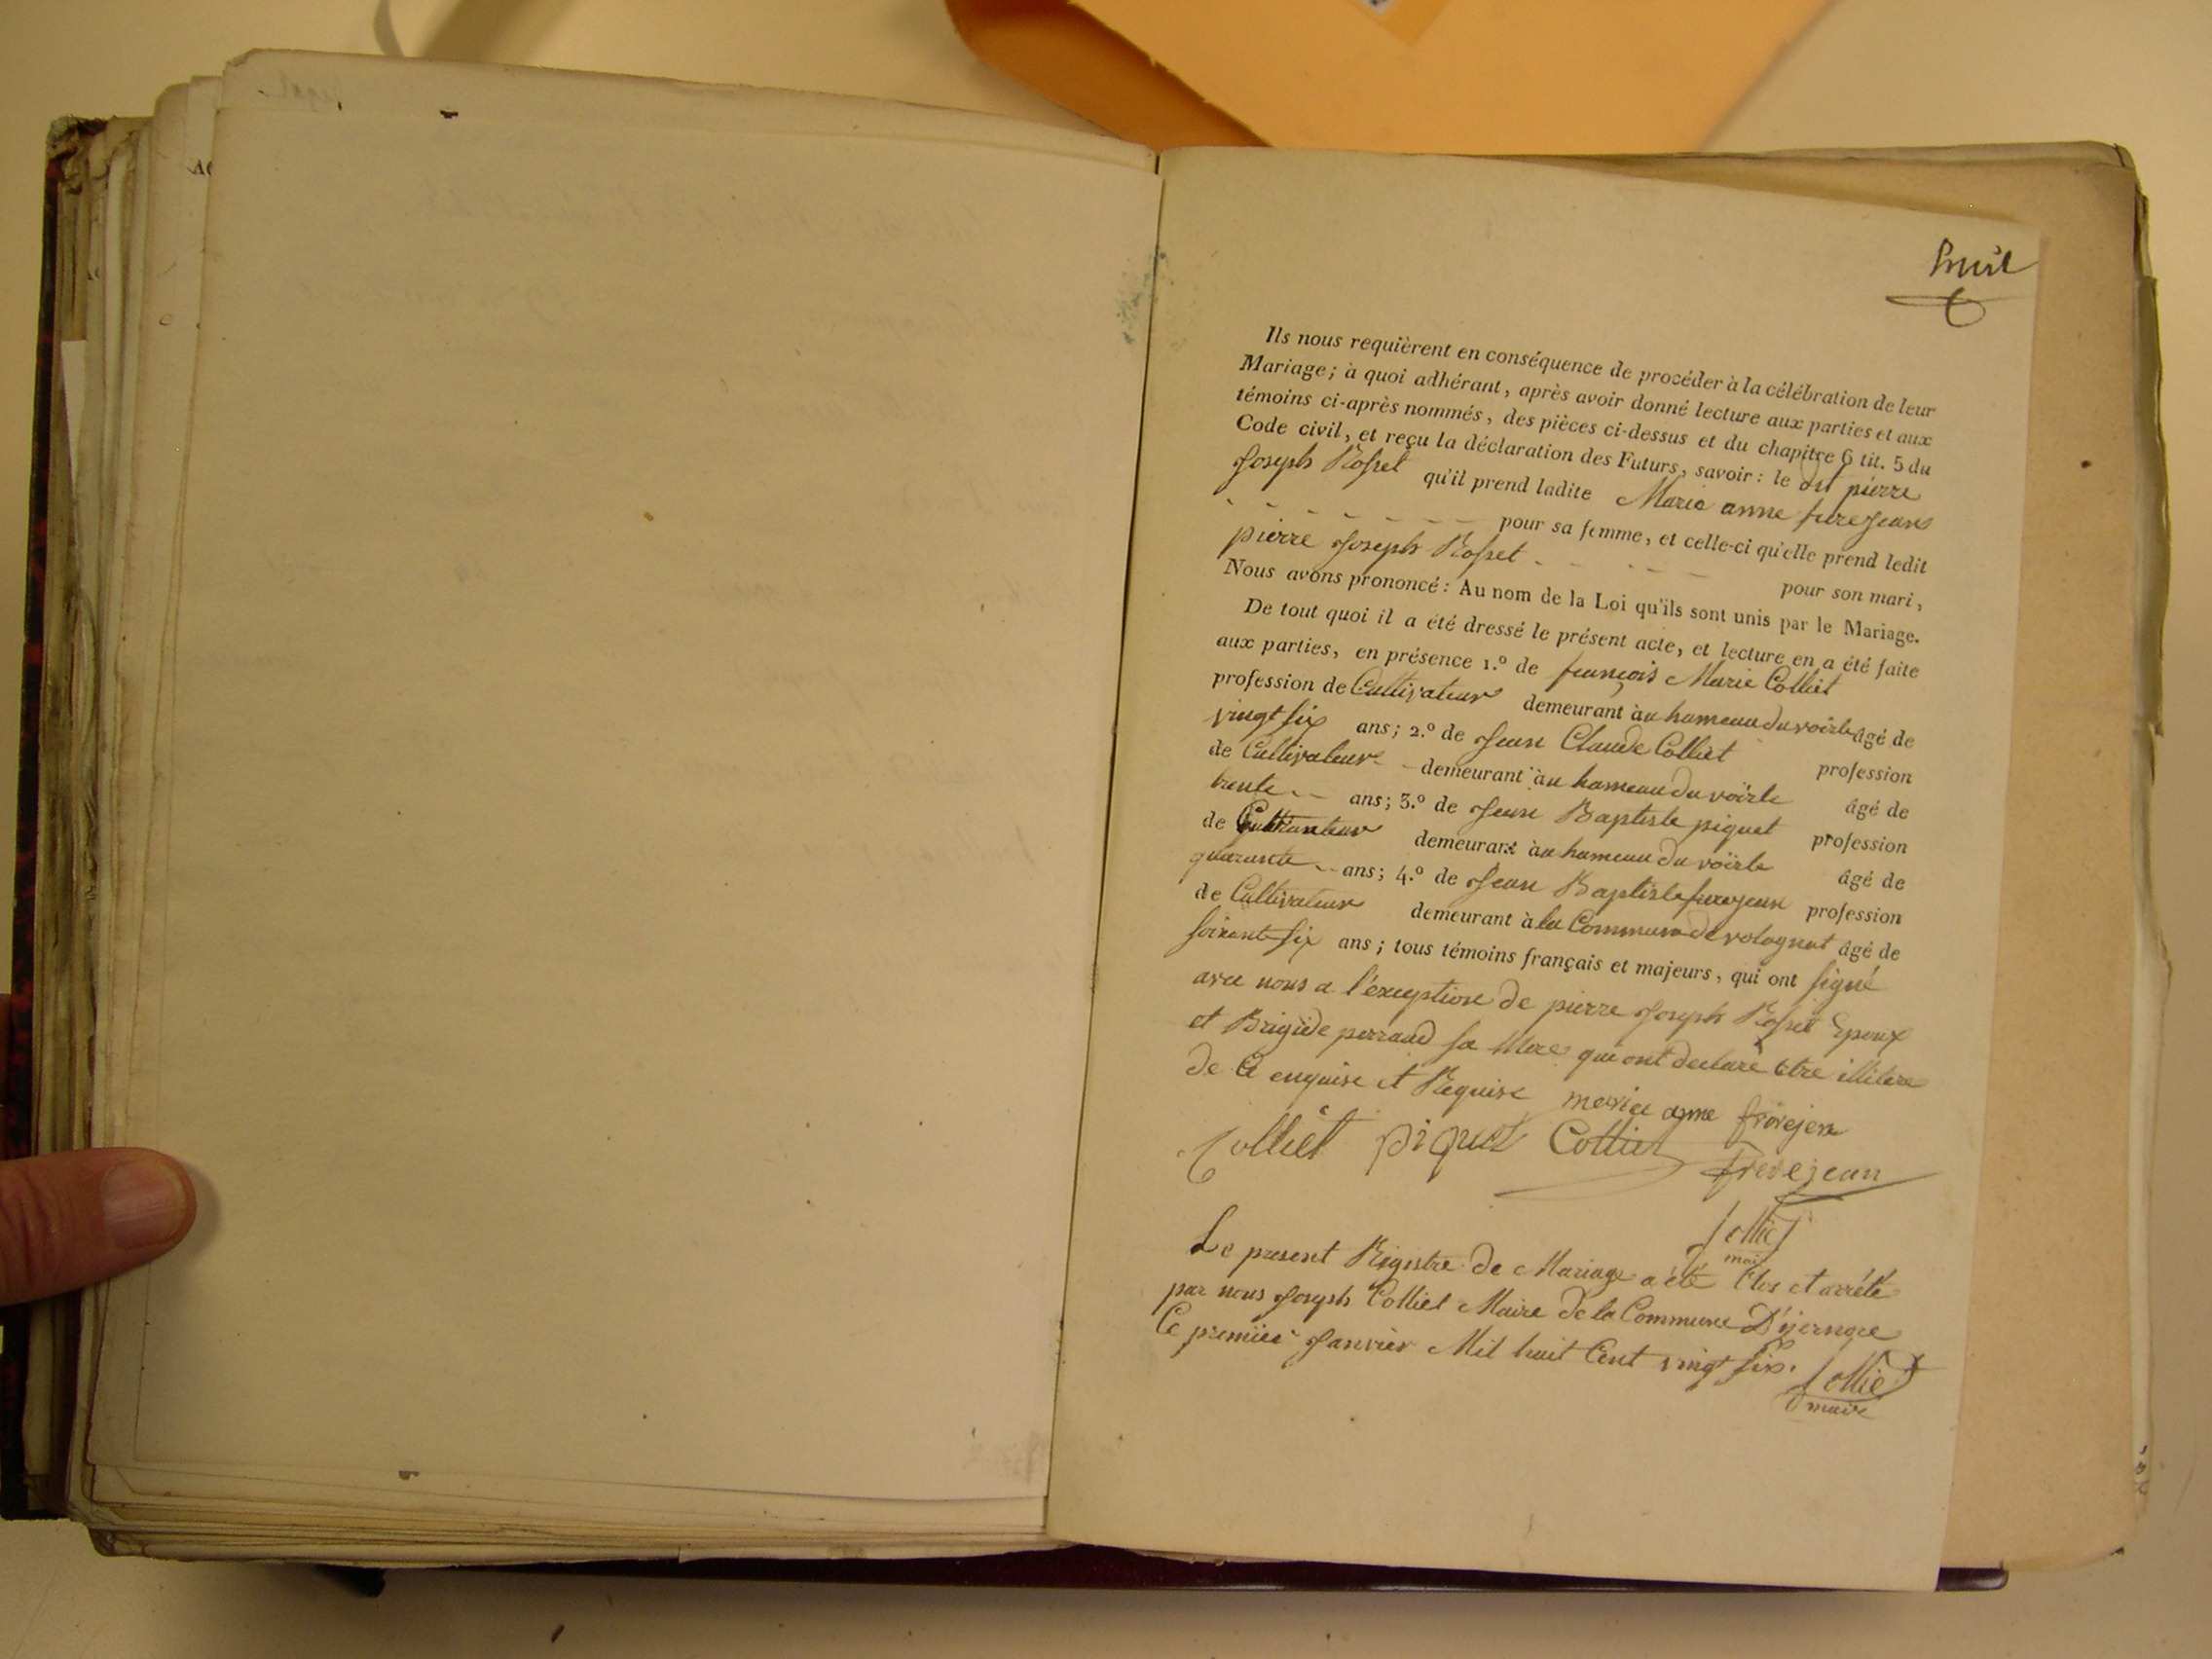 huit
Ils nous requièrent en conséquence de procéder à la célébration de leur
Mariage; à quoi adhérant, après avoir donné lecture aux parties et aux
témoins ci-après nommés, des pièces ci-dessus et du chapitre 6 tit. 5 du
Code civil, et reçu la déclaration des Futurs, savoir: le dit pierre
Joseph Rosset qu'il prend ladite Marie anne frerejean
pour sa femme, et celle-ci qu'elle prend ledit
pierre Joseph Rosset pour son mari,
Nous avons prononcé: Au nom de la Loi qu'ils sont unis par le Mariage.
De tout quoi il a été dressé le présent acte, et lecture en a été faite
aux parties, en présence 1.º de françois Marie Colliet
profession de Cultivateur demeurant à au hameau du voirle âgé de
vingt six ans; 2.º de Jean Claude Colliet profession
de Cultivateur demeurant à au hameau du voirle âgé de
trente ans; 3.º de Jean Baptiste piquet profession
de Cultivateur demeurant à au hameau du voirle âgé de
quarante ans; 4.º de Jean Baptiste frerejean profession
de Cultivateur demeurant à la Commune de volognat âgé de
soixante six ans; tous témoins français et majeurs, qui ont signé
avec nous a l'exception de pierre Joseph Rosset Epoux
et Brigide perraud sa Mere qui ont declaré être illitere
de Ce enquise et Requise marie anne frerejen
Colliet piquet Colliet frerejean
Colliet
maire
Le present Registre de Mariage a été Clos et arrété
par nous Joseph Colliet Maire de la Commune D'izernore
Ce premier Janvier Mil huit Cent vingt six. Colliet
maire